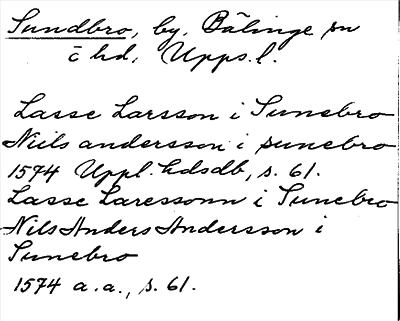 Sundbro, by, Bälinge sn
o hd, Upps. l.
Lasse Larsson i Sunebro
Niils andersson i sunebro
1574 Uppl. hdsdb, s. 61.
Lasse Laressonn i Sunebro
Nils Anders Andersson i
Sunebro
1574 a. a., s. 61.